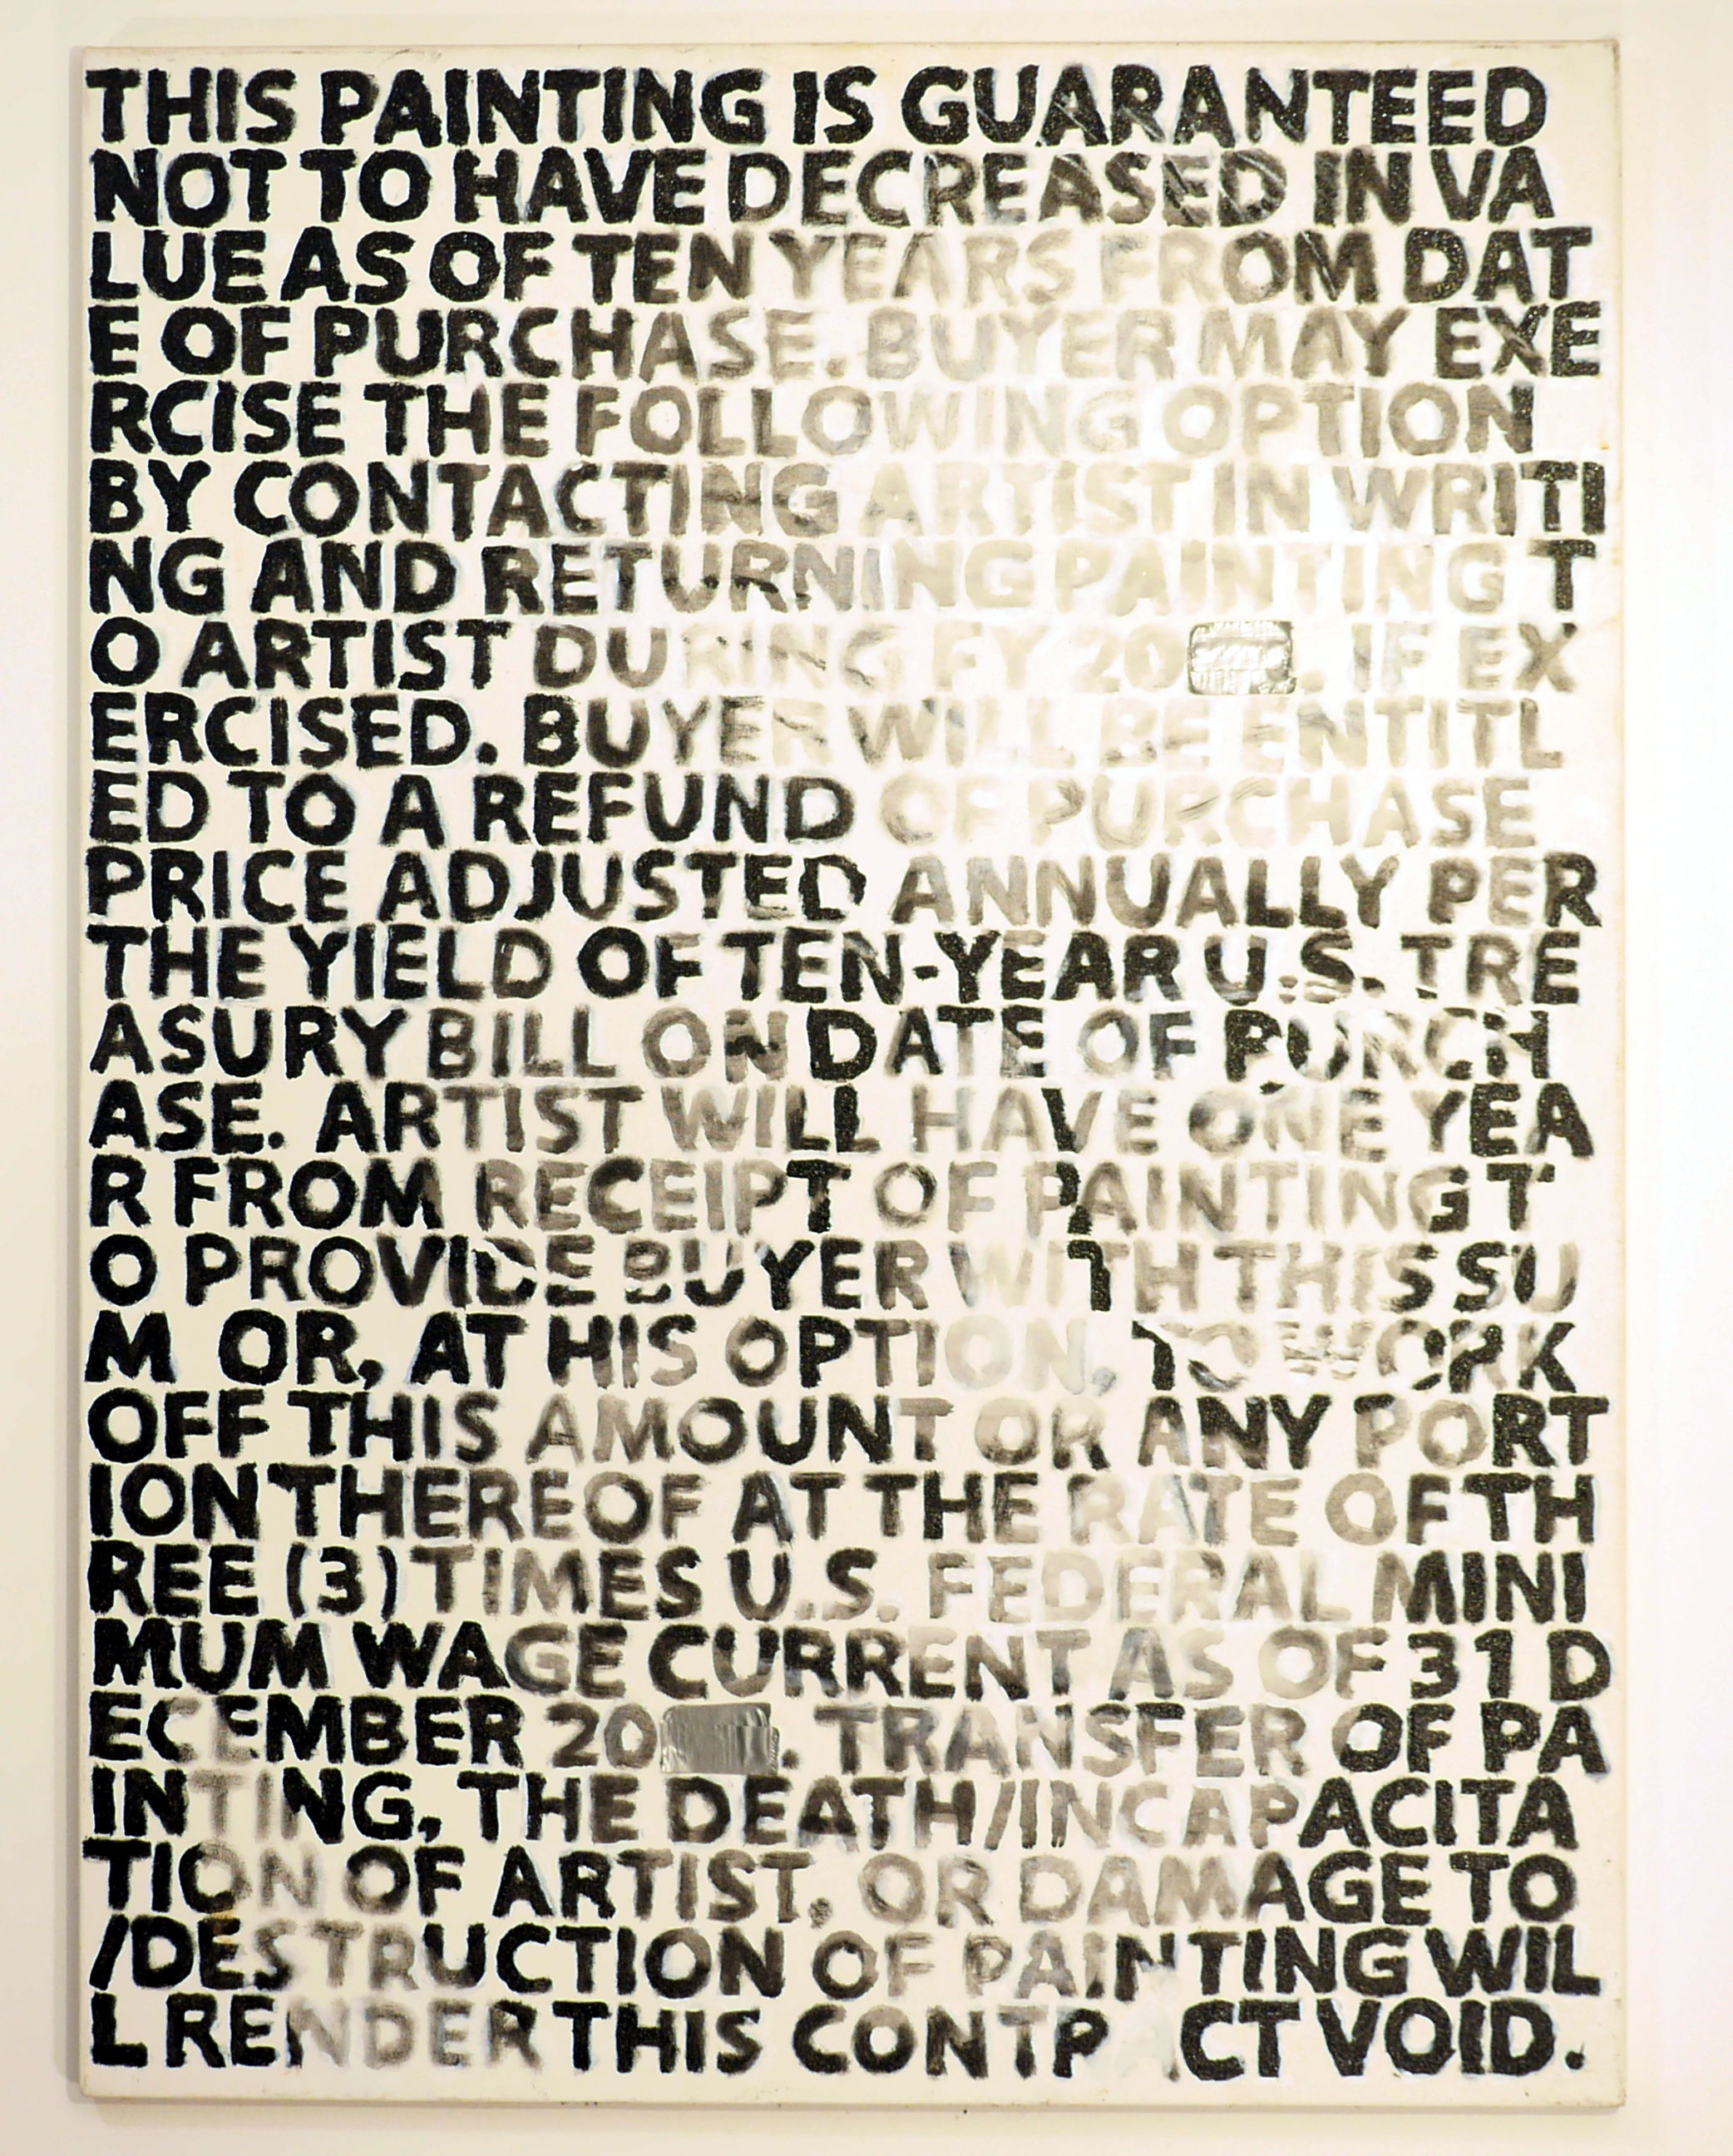 THIS PAINTING IS GUARANTEED
NOT TO HAVE DECREASED IN VA
LUE AS OF TEN YEARS FROM DAT
E OF PURCHASE. BUYER MAY EXE
RCISE THE FOLLOWING OPTION
BY CONTACTING ARTIST IN WRITI
NG AND RETURNING PAINTING T
O ARTIST DURING FY 20 . IF EX
ERCISED. BUYER WILL BE ENTITL
ED TO A REFUND OF PURCHASE
PRICE ADJUSTED ANNUALLY PER
THE YIELD OF TEN-YEAR U.S. TRE
ASURY BILL ON DATE OF PURCH
ASE. ARTIST WILL HAVE ONE YEA
R FROM RECEIPT OF PAINTING T
O PROVIDE BUYER WITH THIS SU
M OR, AT HIS OPTION, TO WORK
OFF THIS AMOUNT OR ANY PORT
ION THEREOF AT THE RATE OF TH
REE (3) TIMES U.S. FEDERAL MINI
MUM WAGE CURRENT AS OF 31 D
ECEMBER 20 . TRANSFER OF PA
INTING, THE DEATH/INCAPACITA
TION OF ARTIST, OR DAMAGE TO
/DESTRUCTION OF PAINTING WIL
L RENDER THIS CONTRACT VOID.